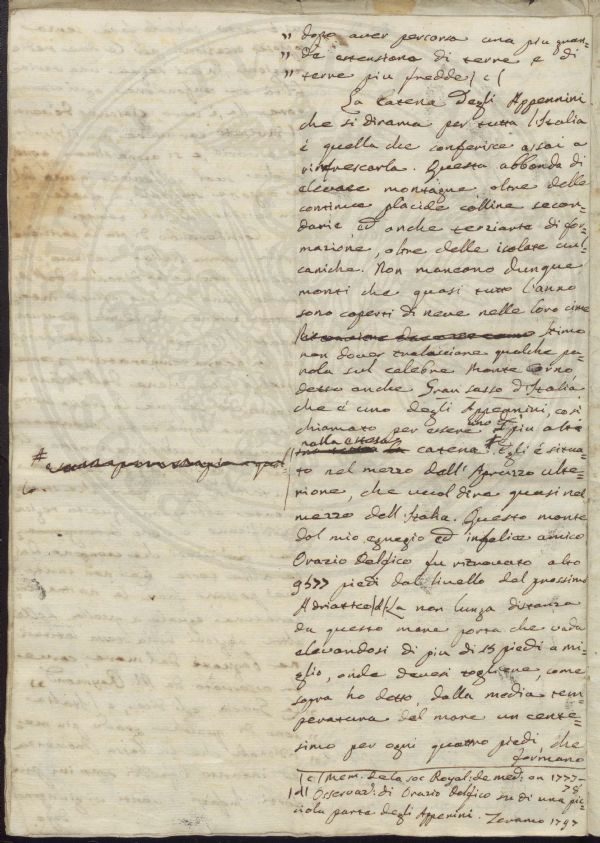 " dopo aver percorsa una piu gran=
" de estensione di terre e di
" terre piu fredde (c(
La catena degli Appennini
che si dirama per tutta l'Italia
è quella che conferisce assai a
rinfrescarla. Questa abbonda di
elevate montagne oltre delle
continue placide colline secon=
darie ed anche terziarie di for=
mazione, oltre delle isolate vul=
caniche. Non mancono dunque
monti che quasi tutto l'anno
sono coperti di neve nelle loro cime
Stimo
non dover tralasciare qualche pa=
rola sul celebre Monte Corno,
detto anche Gran sasso d'Italia,
che è uno degli Appennini, così
chiamato per essere uno i piu alti
nella estesa
catena. # Egli è situa=
#
to nel mezzo dell'Apruzzo ulte=
riore, che vuol dire quasi nel
mezzo dell'Italia. Questo monte
dal mio egregio ed infelice amico
Orazio Delfico fu ritrovato alto
9577 piedi dal livello del prossimo
Adriatico (d(. La non lunga distanza
da questo mare porta che vada
elevandosi di piu di piedi a mi=
glio, onde devesi togliere, come
sopra ho detto, dalla media tem=
peratura del mare un cente=
simo per ogni quattro piedi, che
formano
(c( Mem. de la soc Royal: de med: an 1777-
78
(d( Osservaz: di Orazio Delfico su di una pic=
ciola parte degli Appenini. Teramo 1797